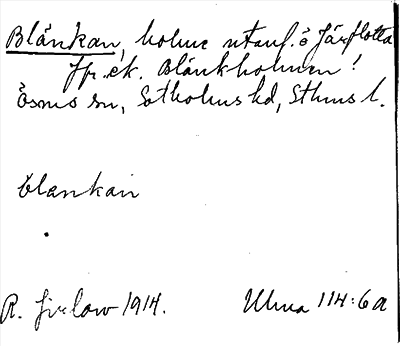 Blänkan, holme utanf. ö Järflotta
Jfr ek. Blänkholmen!
Ösmo sn, Sotholms hd, Sthms l.
blankan
R. Jirlow 1914. Ulma 114:6a